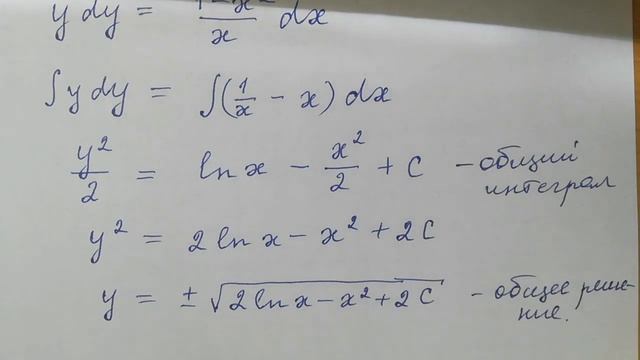 y dy = (1-x²)/x dx
∫ y dy = ∫ (1/x - x) dx
y²/2 = ln x - x²/2 + C - общий интеграл
y² = 2 ln x - x² + 2C
y = ± √(2 ln x - x² + 2C) - общее решение.